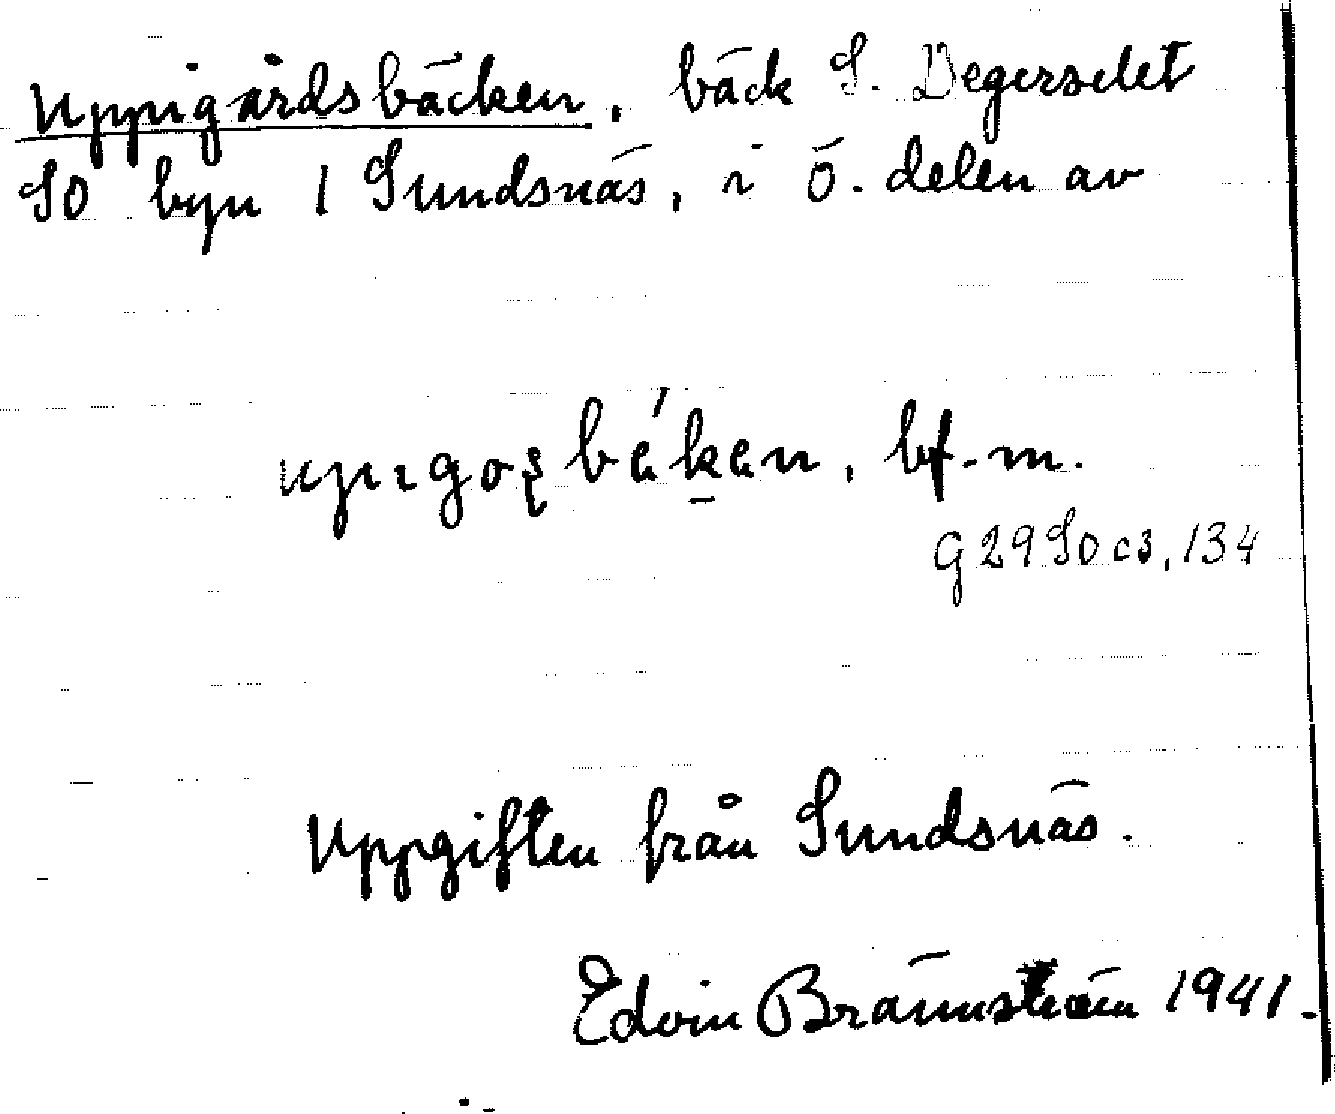 Uppigårdsbäcken, bäck S. Degerselet
SO byn 1 Sundsnäs, i ö. delen av
bf. m.
G 29 SO c3, 134
Uppgiften från Sundsnäs.
Edvin Brännström 1941.